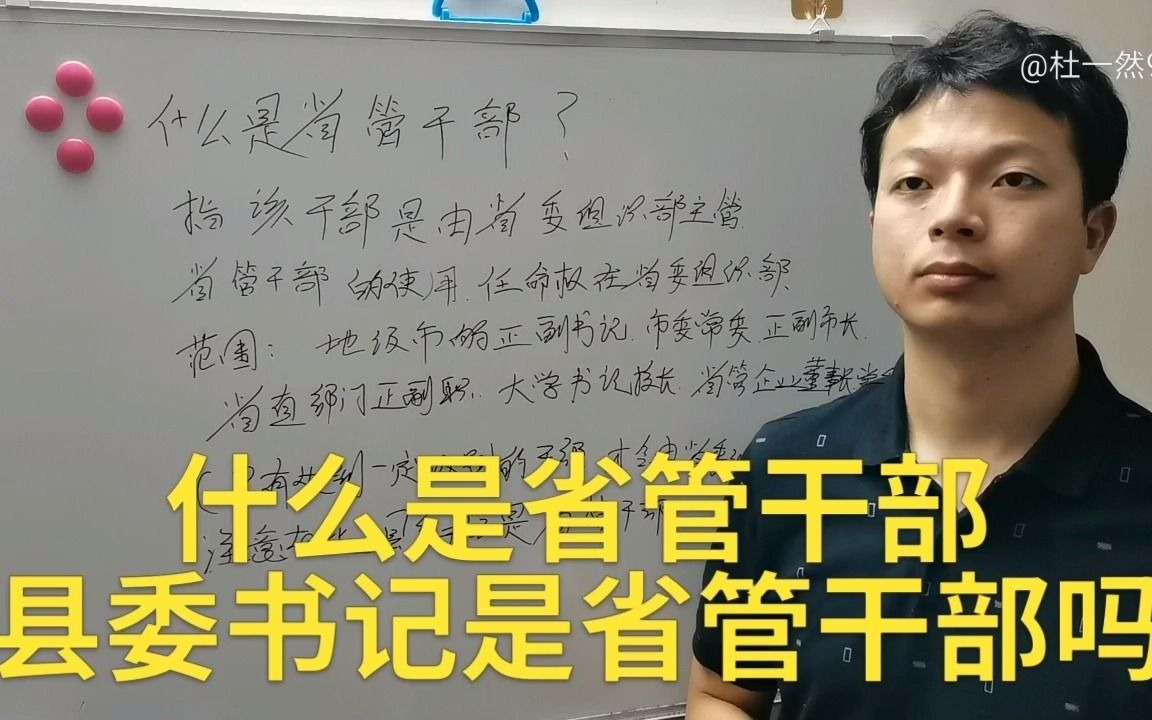 @杜一然9
什么是省管干部？
指该干部是由省委组织部主管
省管干部的使用.任命权在省委组织部.
范围：地级市的正副书记.市委常委.正副市长.
省直部门正副职.大学书记校长.省管企业董事长
有达到一定
注意
什么是省管干部
县委书记是省管干部吗